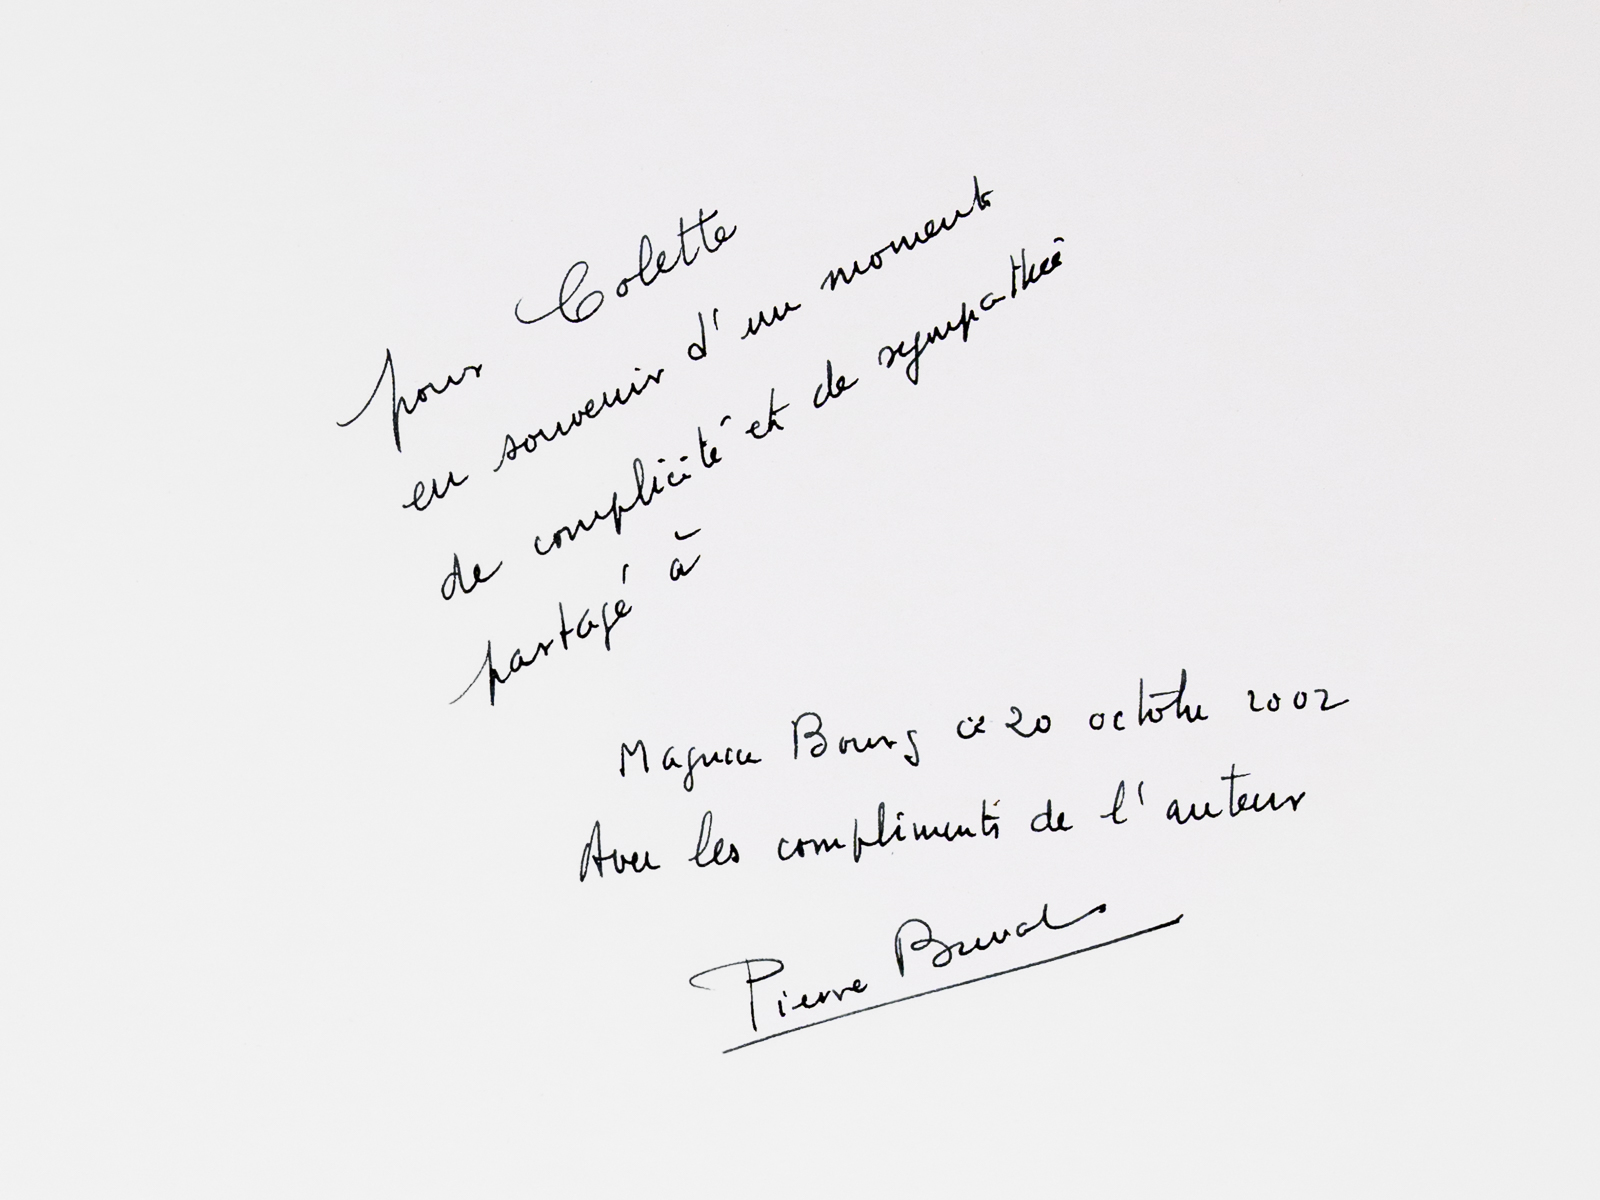 pour Colette
en souvenir d'un moment
de complicité et de sympathie
partagé à
Bourg ce 20 octobre 2002
Avec les compliments de l'auteur
Pierre